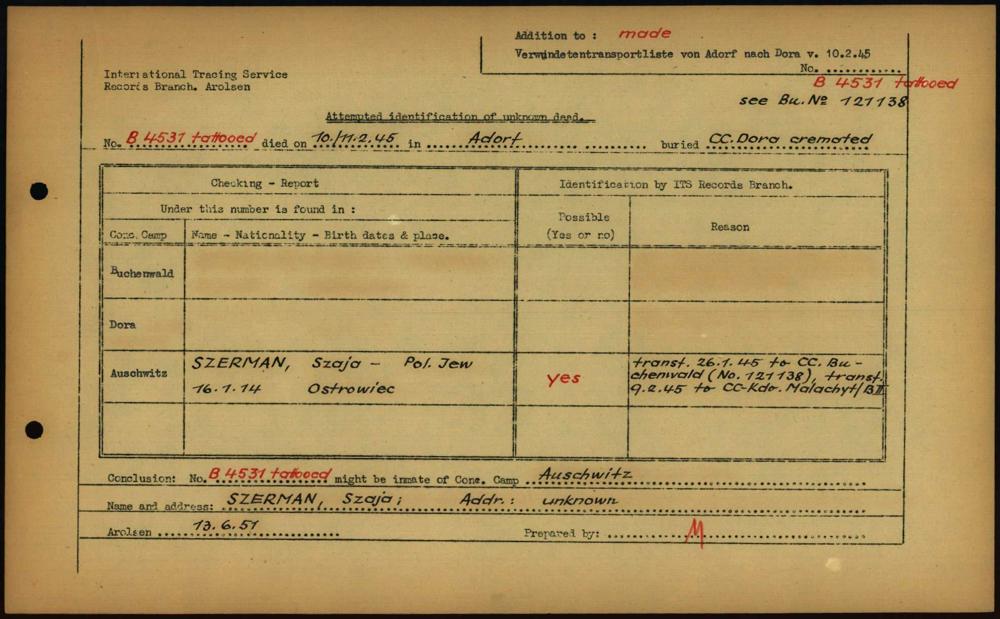 Addition to : made
Verwundetentransportliste von Adorf nach Dora v. 10.2.45
No. ............
B 4531 tattooed
International Tracing Service
Records Branch. Arolsen
see Bu. No 121138
Attempted identification of unknown dead.
No. B 4531 tattooed died on 10./11.2.45 in Adorf buried CC.Dora cremated
Checking - Report
Identification by ITS Records Branch.
Under this number is found in :
Possible
(Yes or no)
Reason
Conc. Camp
Name - Nationality - Birth dates & place.
Buchenwald
Dora
Auschwitz
SZERMAN, Szaja - Pol. Jew
16.1.14 Ostrowiec
yes
transf. 26.1.45 to CC. Bu-
chenwald (No. 121138), transf.
9.2.45 to CC-Kdo. Malachyt/BII
Conclusion: No. B 4531 tattooed might be inmate of Conc. Camp Auschwitz
Name and address: SZERMAN, Szaja; Addr.: unknown
Arolsen 13.6.51
Prepared by: M